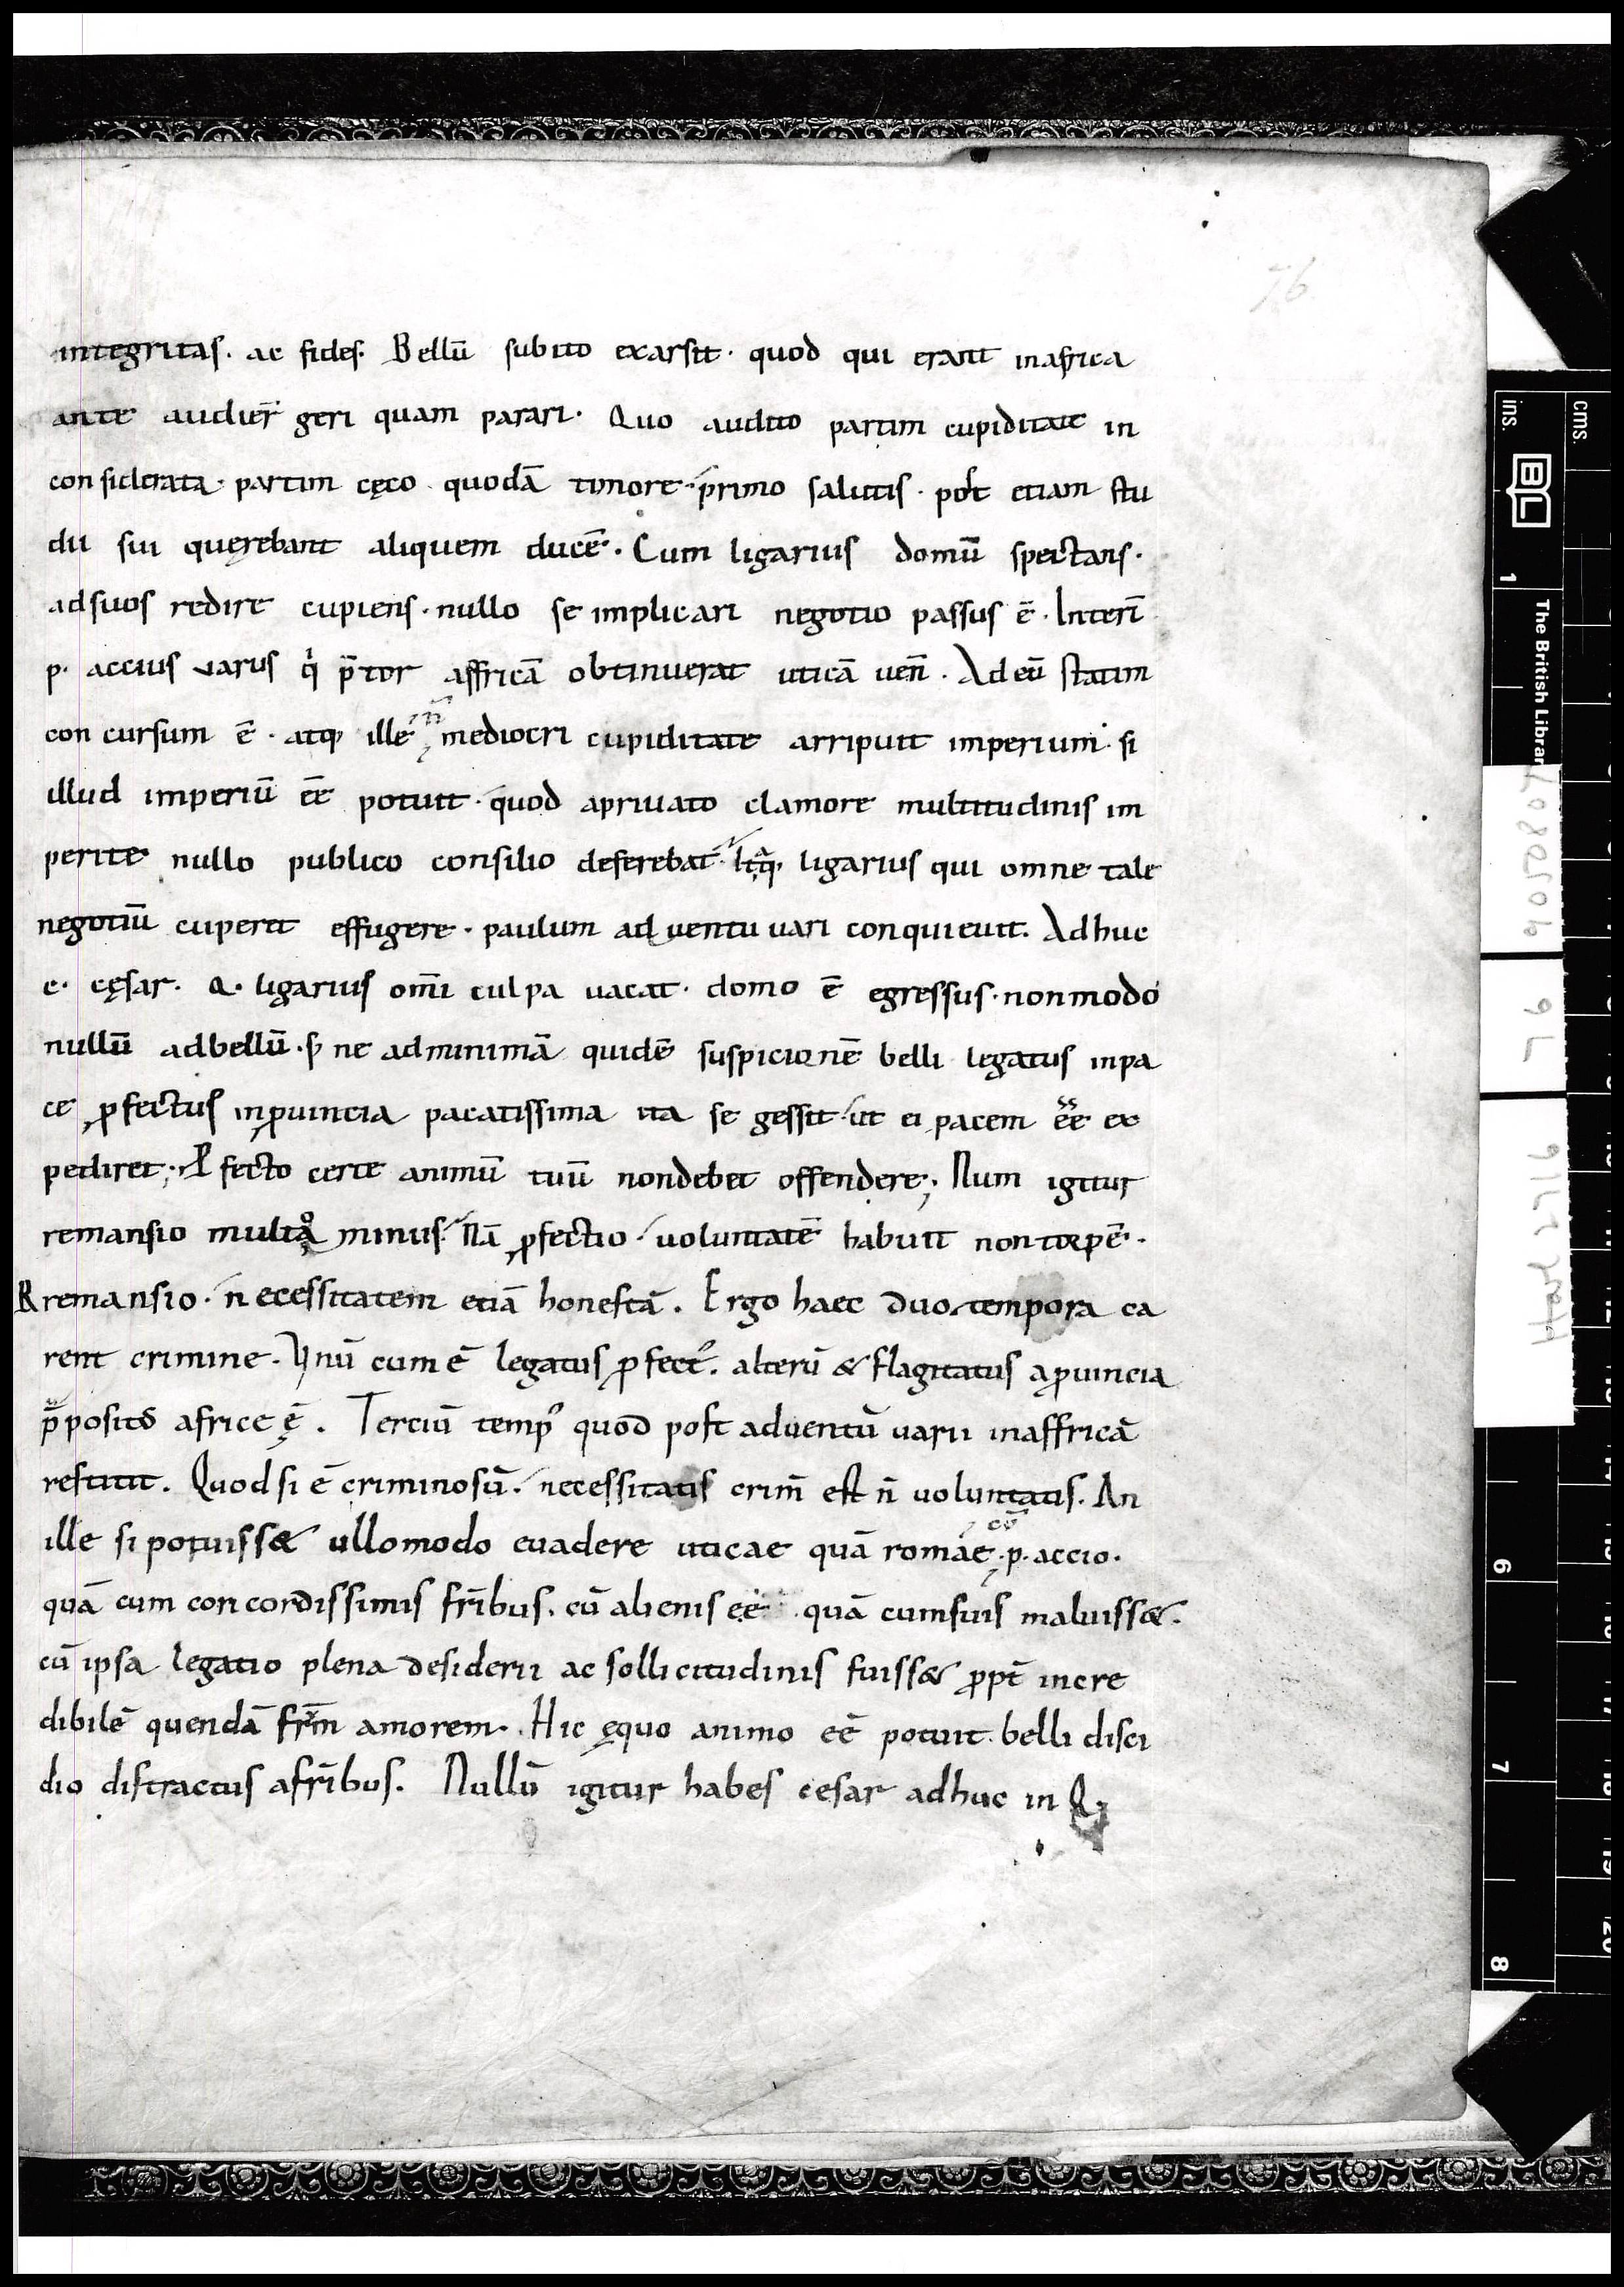 76
integritas. ac fides. Bellū subito exarsit. quod qui erant inafrica
ante audier̄ geri quam parari. Quo audito partim cupiditate in
considerata. partim cęco quodā timore. primo salutis. post etiam stu
dii sui quęrebant aliquem ducē. Cum ligarius domū spectans.
adsuos redire cupiens. nullo se implicari negotio passus ē. Interī
p. accius varus q̇ p̄tor affricā obtinuerat uticā uen̄. Adeū statim
concursum ē. atq; ille n̄ mediocri cupiditate arripuit imperium. si
illud imperiū eē potuit. quod apriuato clamore multitudinis im
perite nullo publico consilio deferebat̄. Itaq; ligarius qui omne tale
negotiū cuperet effugere. paulum aduentu uari conquieuit. Adhuc
c. cęsar. Q. ligarius om̄i culpa uacat. domo ē egressus. nonmodo
nullū adbellū. s; ne adminimā quidē suspicionē belli legatus inpa
ce ꝓfectus inꝓuincia pacatissima ita se gessit. ut ei pacem eē ex
pediret; Ꝓfecto certe animū tuū nondebet offendere; Num igitur
remansio multo minus. Nā ꝓfectio. uoluntatē habuit nonturpē.
Rremansio. necessitatem etiā honestā. Ergo haec duo tempora ca
rent crimine. Vnū cum ē legatus ꝓfect᾽. alterū & flagitatus aꝓuincia
p̄positus africe ē. Terciū temp᾽ quod post aduentū uarii inaffricā
restitit. Quodsi ē criminosū. necessitatis crim̄ est n̄ uoluntatis. An
ille si potuiss& ullomodo euadere uticae quā romae. cū p. accio.
quā cum concordissimis fr̄ibus. cū alienis eē quā cumsuis maluiss&.
cū ipsa legatio plena desiderii ac sollicitudinis fuiss& ꝓpt̄ incre
dibilē quendā fr̄m amorem. Hic ęquo animo eē potuit belli disci
dio distractus afr̄ibus. Nullū igitur habes cesar adhuc in Q.
cms.
ins.
BL
The British Library
1
6
7
8
76
Harl 2716